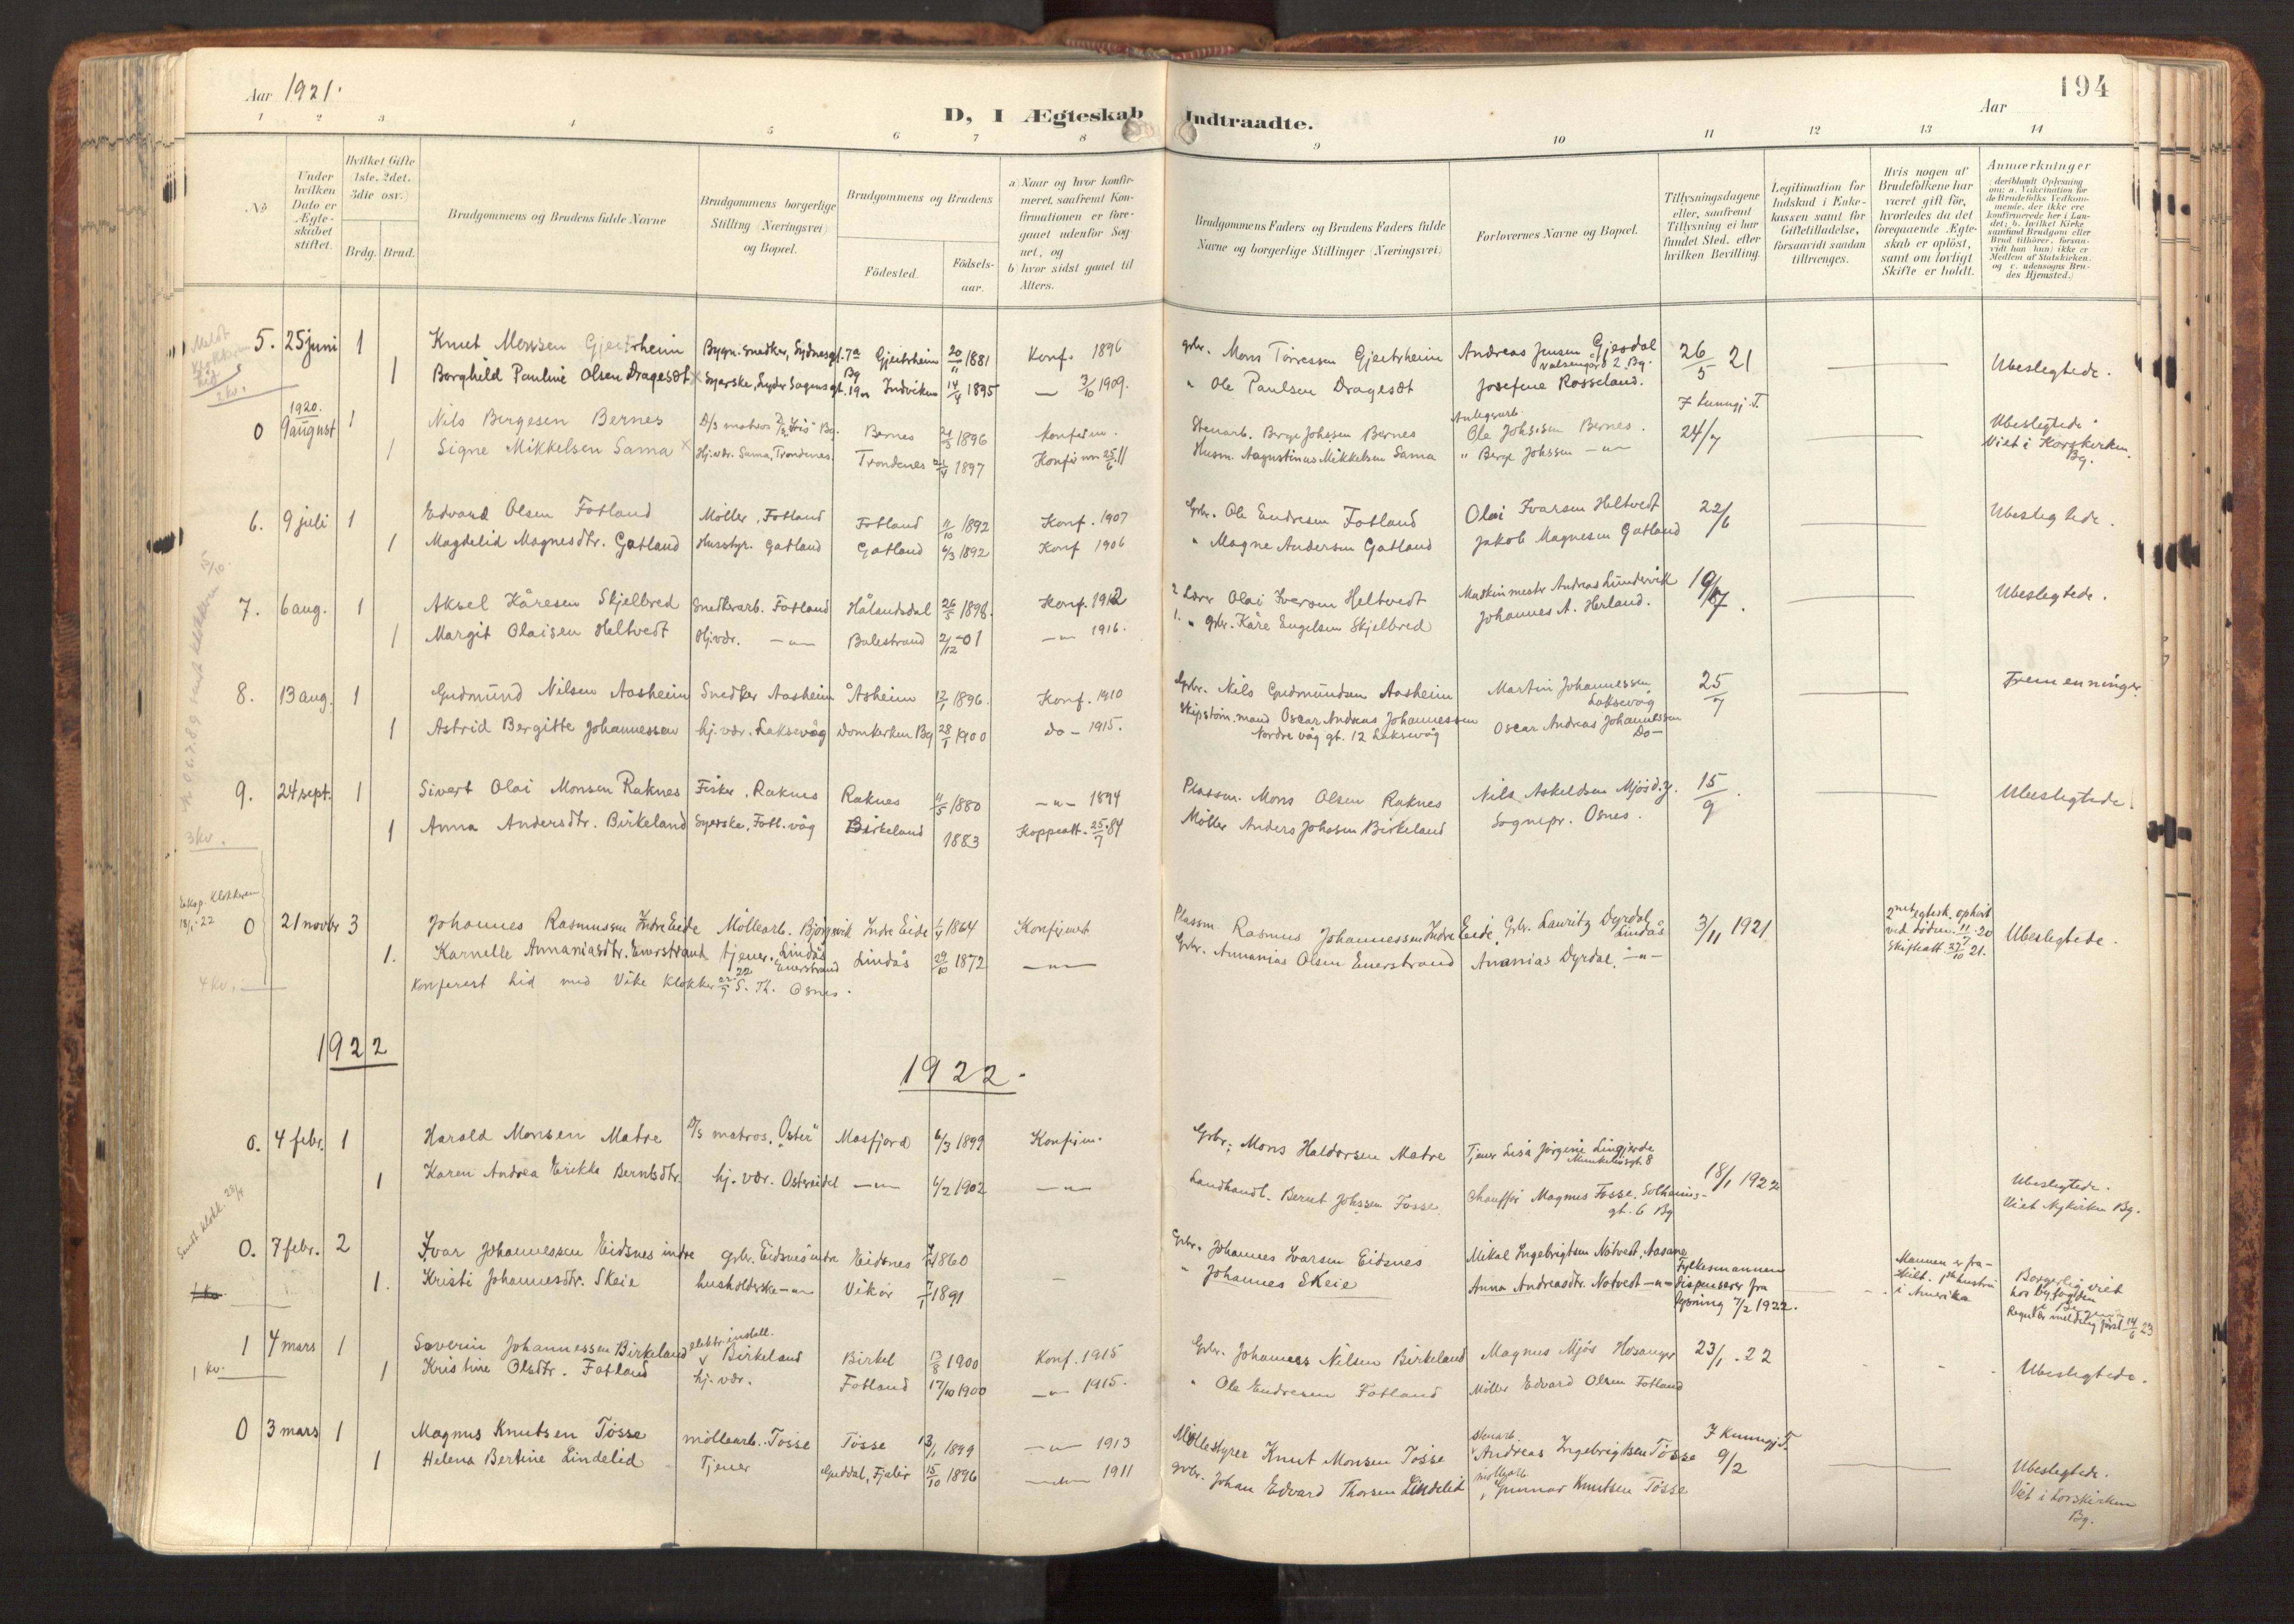 Aar 1921.
194
Aar
D, I Ægteskab Indtraadte.
1 2 3 4 5 6 7 8 9 10 11 12 13 14
No
Under hvilken Dato er Ægteskabet stiftet.
Hvilket Gifte (1ste, 2det. 3die osv.)
Brdg. Brud.
Brudgommens og Brudens fulde Navne
Brudgommens borgerlige Stilling (Næringsvei) og Bopæl.
Brudgommens og Brudens
Födested. Födsels-aar.
a) Naar og hvor konfirmeret, saafremt Konfirmationen er foregaaet udenfor Sognet, og
b) hvor sidst gaaet til Alters.
Brudgommens Faders og Brudens Faders fulde Navne og borgerlige Stillinger (Næringsvei)
Forlovernes Navne og Bopæl.
Tillysningsdagene eller, saafremt Tillysning ei har fundet Sted, efter hvilken Bevilling.
Legitimation for Indskud i Enkekassen samt for Giftetilladelse, forsaavidt saadan tiltrænges.
Hvis nogen af Brudefolkene har været gift för, hvorledes da det foregaaende Ægteskab er oplöst, samt om lovligt Skifte er holdt.
Anmærkninger (deriblandt Oplysning om: a. Vakcination for de Brudefolks Vedkommende, der ikke ere konfirmerede her i Landet; b. hvilket Kirkesamfund Brudgom eller Brud tilhörer, forsaavidt han (hun) ikke er Medlem af Statskirken, og c. udensogns Brudes Hjemsted.)
5. 25 juni 1 Knut Monsen Gjeitrheim Bygn. snedker, Sydnesgt. 7a Bg Gjeitrheim 20/11 1881 Konf. 1896 grbr. Mons Törressen Gjeitrheim Andreas Jensen Gjesdal 26/5 21 Ubeslegtede.
1 Borghild Pauline Olsen Dragesæt Syerske, Lyder Sagensgt. 19 Indviken 14/4 1895 3/10 1909. " Ole Paulsen Dragesæt Josefine Rosseland.
1920.
0 9 august 1 Nils Bergesen Bernes D/S matros Bernes 21/3 1896 konfirm. Stenarb. Berge Johssen Bernes Ole Johssen Bernes. 24/7 Ubeslegtede
1 Signe Mikkelsen Sama Hj. vær. Sama, Trondenes. Trondenes 1897 Konfirm 25/6 11 Husm. Augustinus Mikkelsen Sama " Berge Johssen -"- Viet i Korskirken Bg.
6. 9 juli 1 Edvard Olsen Fotland Möller, Fotland Fotland 11/10 1892 Konf. 1907 Grbr. Ole Endresen Fotland Olai Ivarsen Heltvedt 22/6 Ubeslegtede.
1 Magdelid Magnesdtr. Gatland Husstyr. Gatland Gatland 6/3 1892 Konf 1906 " Magne Andersen Gatland Jakob Magnesen Gatland
7. 6 aug. 1 Aksel Kåresen Skjelbred Snedkerarb. Fotland Hålandsdal 26/5 1898. Konf. 1912 2 Lærer Olai Iversen Heltvedt Maskinmester Andreas Lundervik 19/7. Ubeslegtede.
1 Margit Olaisen Heltvedt Hj. vær. -"- Balestrand 21/12 01 -"- 1916. 1. " grbr. Kåre Engelsen Skjelbred Johannes A. Herland.
8. 13 aug. 1 Gudmund Nilsen Aasheim Snedker Aasheim Åsheim 12/1 1896. Konf. 1910 Grbr. Nils Gudmundsen Aasheim Martin Johannessen Laksevåg 25/7 Fremenninger
1 Astrid Bergitte Johannessen hj. vær. Laksevåg Domkirken Bg 28/1 1900 do - 1915. Skipstöm.mand Oscar Andreas Johannessen Nordre våg gt. 12 Laksevåg Oscar Andreas Johannessen Do-
9. 24 sept. 1 Sivert Olai Monsen Raknes Fisker. Raknes Raknes 11/5 1880 -"- 1894 Plassm. Mons Olsen Raknes Nils Askeldsen Mjös d.y. 15/9. Ubeslegtede.
1 Anna Andersdtr. Birkeland Syerske, Fotl. våg Birkeland 1883 Koppeatt. 25/7 84 Möller Anders Johssen Birkeland Sognepr. Osnes.
3 kv.
0 21 novbr 3 Johannes Rasmussen Indre Eide Möllearb. Bjørgvik Indre Eide 1864 Konfirmert Plassm. Rasmus Johannessen Indre Eide Grbr. Lauritz Dyrdal, Lindås 3/11 1921 2net egtesk. ophört ved döden 11/7 20 Skifteatt. 27/10 21. Ubeslegtede.
1. Karnelle Annaniasdtr. Enerstrand tjener. Lindås Enerstrand Lindås 29/10 1872 -"- Grbr. Annanias Olsen Enerstrand Ananias Dyrdal. -"-
4 kv. Konferert hid med Vike klokker 22/9 22 S. Th. Osnes.
1922
1922.
0. 4 febr. 1 Harald Monsen Matre D/S matros. "Oster" Masfjord 6/3 1899 Konfirm. Grbr. Mons Haldorsen Matre Tjener Lisa Jörgine Lingjerde 18/1 1922 Ubeslegtede.
1 Karen Andrea Erikka Berntsdtr. hj. vær. Ostreidet -"- 6/2 1902 -"- Landhandl. Bernt Johssen Fosse Chaufför Magnus Fosse. Solheimsgt. 6 Bg Viet Nykirken Bg.
0. 7 febr. 2 Ivar Johannessen Eidsnes indre grbr. Eidsnes indre Eidsnes 1860 Grbr. Johannes Ivarsen Eidsnes Mikal Ingebrigtsen Nötvedt, Aasane Fylkesmannen Mannen er fra-skilt. i Amerika Borgerlig viet hos byfogden i Bergen
1. Kristi Johannesdtr. Skeie husholderske -"- Vikör 7/1 1891 " Johannes Skeie Anna Andreasdtr. Nötvedt -"- dispenserer fra lysning 7/2 1922.
1 4 mars 1 Soverin Johannessen Birkeland elektr. install. Birkeland Birkel 13/8 1900 Konf. 1915 Grbr. Johannes Nilsen Birkeland Magnus Mjös Hosanger 23/1. 22 Ubeslegtede.
1 kv. 1 Kristine Olsdtr. Fotland hj. vær. Fotland 17/10 1900 -"- 1915. " Ole Endresen Fotland Möller Edvard Olsen Fotland
0 3 mars 1 Magnus Knutsen Tösse möllearb. Tösse Tösse 13/1 1899 -"- 1913 Möllestyrer Knut Monsen Tösse stenarb. Andreas Ingebrigtsen Tösse 9/2 Ubeslegtede.
1 Helena Bertine Lindelid Tjener Guddal, Fjaler 15/10 1896 -"- 1911 grbr. Johan Edvard Thorsen Lindelid möllearb. Gunnar Knutsen Tösse Viet i Korskirken Bg.